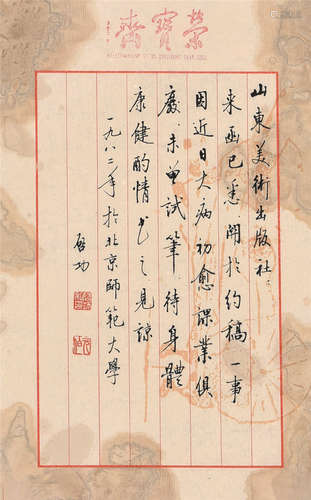 榮寶齋
山東美術出版社
来函已悉關於約稿一事
因近日大病初愈課業俱
廢未曾試筆待身體
康健酌情書之見諒
一九八二年於北京師範大學
啟功